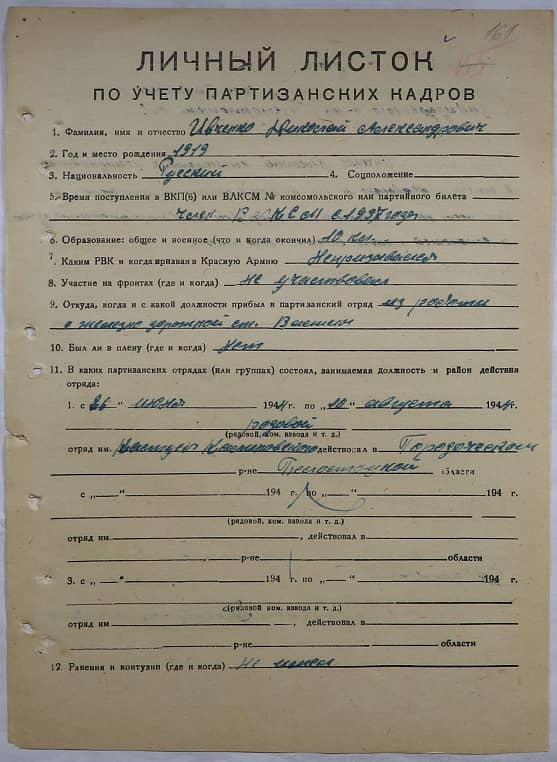 161
ЛИЧНЫЙ ЛИСТОК
ПО УЧЕТУ ПАРТИЗАНСКИХ КАДРОВ
1. Фамилия, имя и отчество Ивченко Николай Александрович
2. Год и место рождения 1919
3. Национальность Русский 4. Соцположение
5. Время поступления в ВКП(б) или ВЛКСМ № комсомольского или партийного билета
член ВЛКСМ с 1937 года
6. Образование: общее и военное (что и когда окончил) 10 кл.
7. Каким РВК и когда призван в Красную Армию Непризывался
8. Участие на фронтах (где и когда) не участвовал
9. Откуда, когда и с какой должности прибыл в партизанский отряд из работы
с железно дорожной ст.
10. Был ли в плену (где и когда) Нет
11. В каких партизанских отрядах (или группах) состоял, занимаемая должность и район действия
отряда:
1. с 26 " июня 1944 г. по „10" августа 1944 г.
рядовой
(рядовой, ком. взвода и т. д.)
отряд им. Кастуся Калиновского действовал в Городокском
р-не Белостоцкой области
с „ — " 194 г. по „ — " 194 г.
(рядовой, ком. взвода и т. д.)
отряд им. , действовал в
р-не области
3. с „ — " 194 г. по „ — " 194 г.
(рядовой, ком. взвода и т. д.)
отряд им. , действовал в
р-не области
12. Ранения и контузии (где и когда) не имел